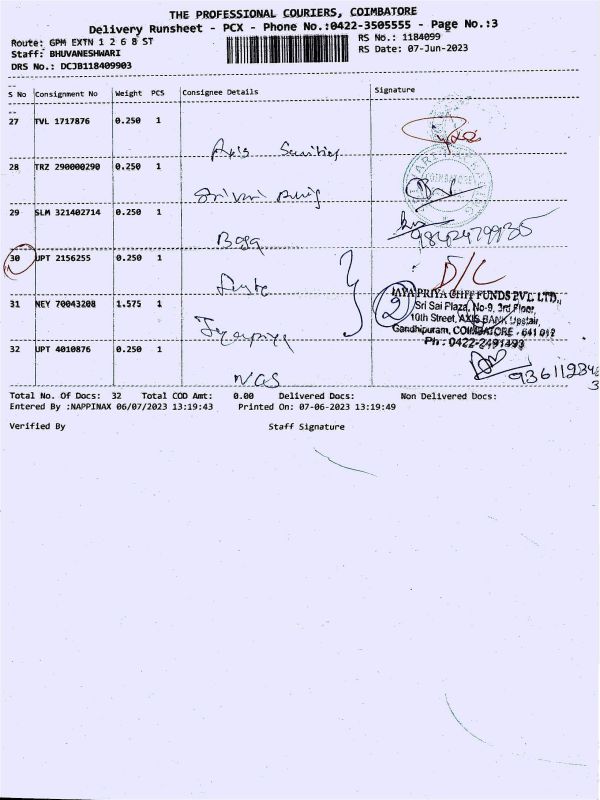 THE PROFESSIONAL COURIERS, COIMBATORE
Delivery Runsheet - PCX - Phone No.:0422-3505555 - Page No.:3
Route: GPM EXTN 1 2 6 8 ST
RS No.: 1184099
Staff: BHUVANESHWARI
RS Date: 07-Jun-2023
DRS No.: DCJB118409903
S No Consignment No Weight PCS Consignee Details Signature
27 TVL 1717876 0.250 1
Axis Securities
28 TRZ 290000290 0.250 1
COIMBATORE
29 SLM 321402714 0.250 1
Baga
9842479935
30 UPT 2156255 0.250 1
D/C
2
JAYAPRIYA CHIT FUNDS PVT. LTD.,
31 NEY 70043208 1.575 1
Sri Sai Plaza, No-9, 3rd Floor,
10th Street, AXIS BANK Upstair,
Gandhipuram, COIMBATORE - 641 012
Jayapriya
Ph : 0422-2491493
32 UPT 4010876 0.250 1
NGS
Total No. Of Docs: 32 Total COD Amt: 0.00 Delivered Docs: Non Delivered Docs:
Entered By :NAPPINAX 06/07/2023 13:19:43 Printed On: 07-06-2023 13:19:49
Verified By Staff Signature